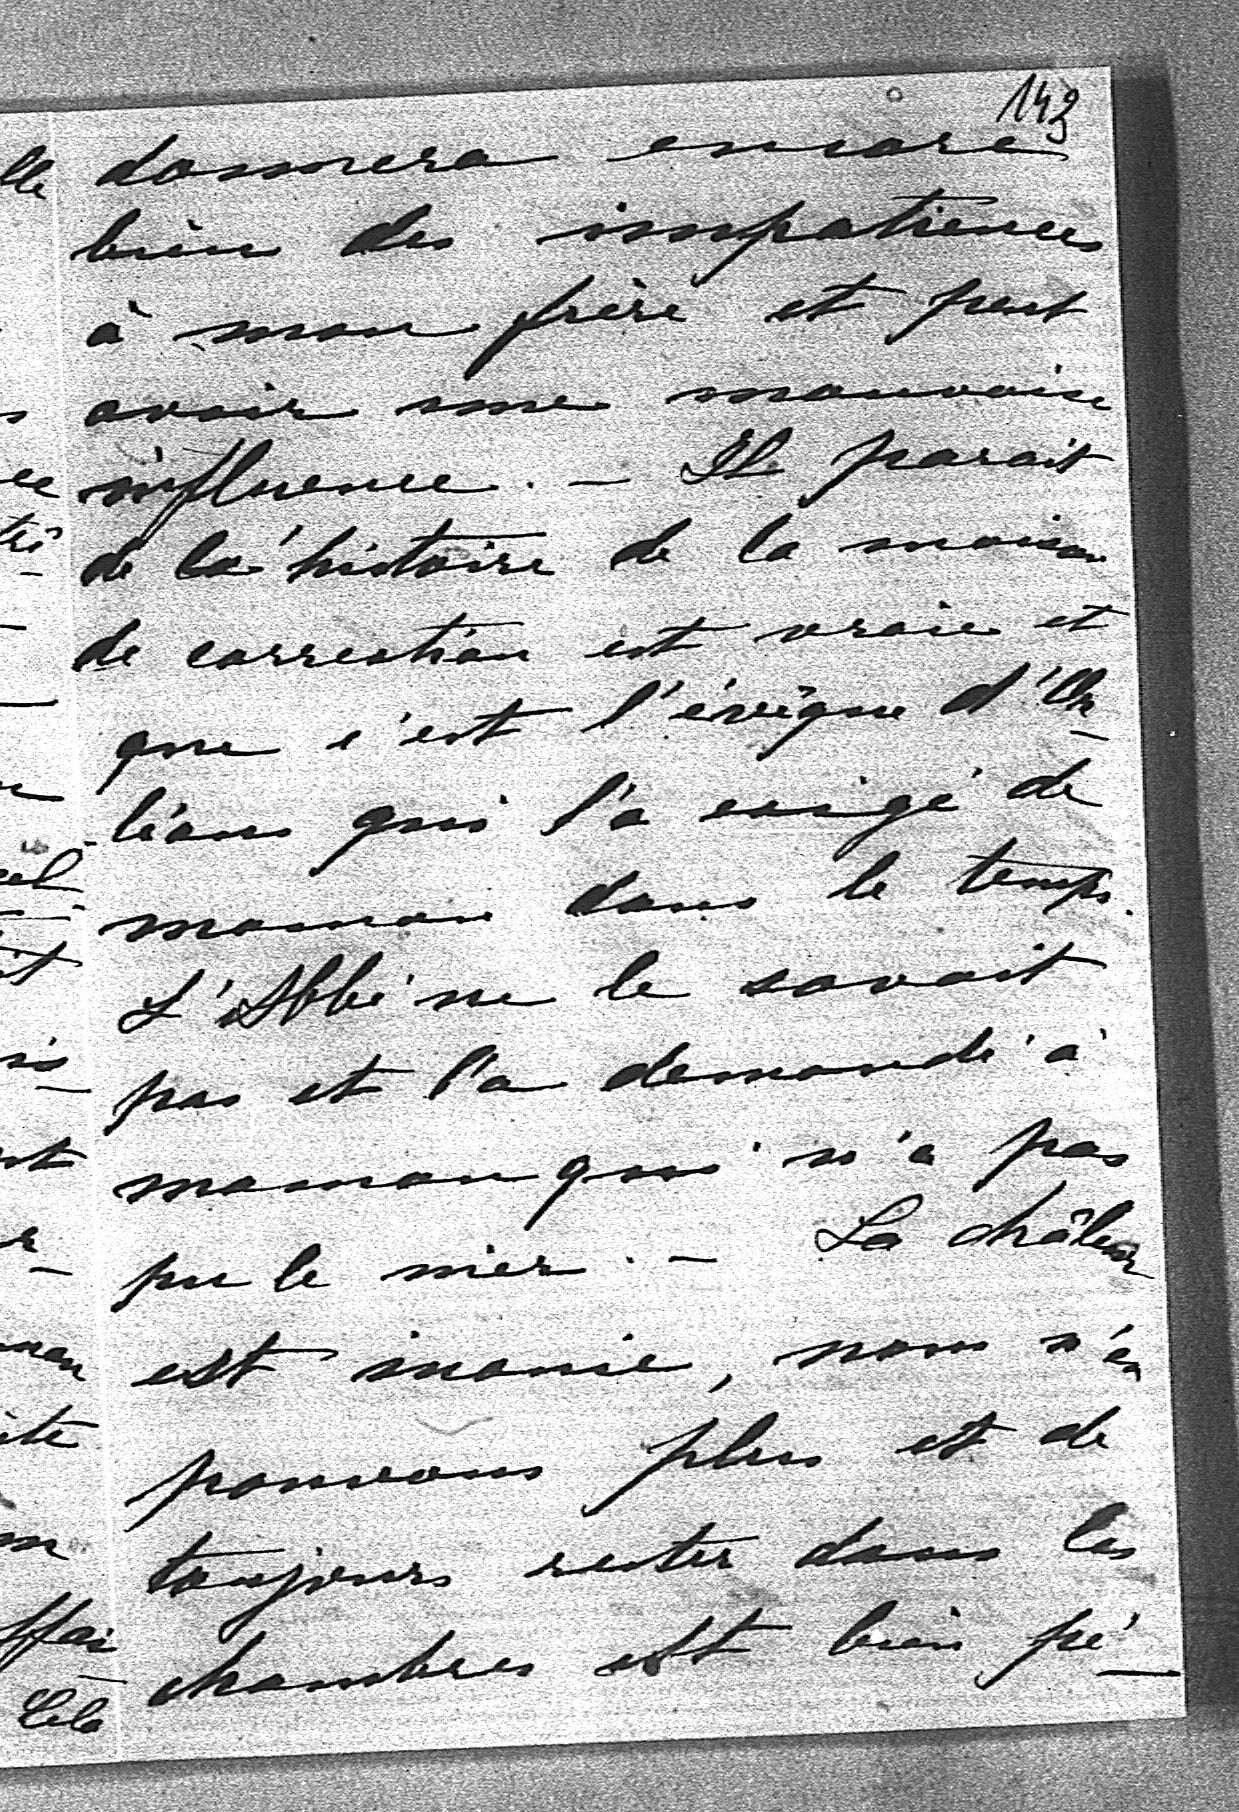 143
donnera encore
bien des impatiences
à mon frère et peut
avoir une mauvaise
influence. — Il parait
de la'histoire de la maison
de correction est vraie et
que c'est l'évêque d'Or-
léans qui l'a exigé de
maman dans le temps.
L'Abbé ne le savait
pas et l'a demandé à
maman qui n'a pas
pu le nier. — La châleur
est inouie, nous n'en
pouvons plus et de
toujours rester dans les
chambres est bien pé-